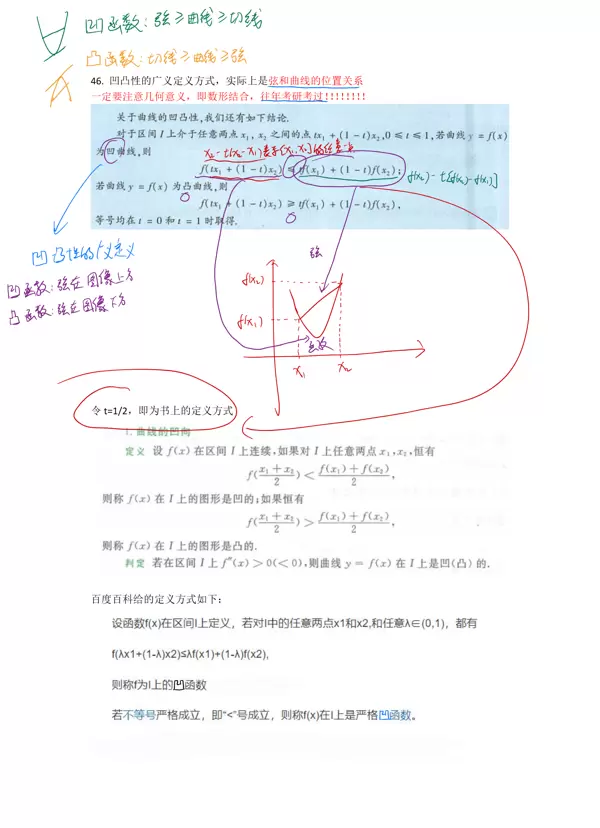 凹函数: 弦≥曲线≥切线
凸函数: 切线≥曲线≥弦
46. 凹凸性的广义定义方式，实际上是弦和曲线的位置关系
一定要注意几何意义，即数形结合，往年考研考过!!!!!!!!
关于曲线的凹凸性,我们还有如下结论.
对于区间 I 上介于任意两点 x₁, x₂ 之间的点 tx₁ + (1 − t)x₂,0 ≤ t ≤ 1,若曲线 y = f(x)
为凹曲线,则
x₂ − t(x₂ − x₁) 表示[x₁, x₂]的任意一点
f(tx₁ + (1 − t)x₂) ≤ tf(x₁) + (1 − t)f(x₂);
f(x₂) − t[f(x₂) − f(x₁)]
若曲线 y = f(x) 为凸曲线,则
f(tx₁ + (1 − t)x₂) ≥ tf(x₁) + (1 − t)f(x₂),
等号均在 t = 0 和 t = 1 时取得.
凹凸性的广义定义
凹函数: 弦在图像上方
凸函数: 弦在图像下方
弦
f(x₂)
f(x₁)
函数
x₁
x₂
令 t=1/2，即为书上的定义方式
1. 曲线的凹向
定义 设 f(x) 在区间 I 上连续,如果对 I 上任意两点 x₁, x₂,恒有
f((x₁ + x₂)/2) < (f(x₁) + f(x₂))/2,
则称 f(x) 在 I 上的图形是凹的;如果恒有
f((x₁ + x₂)/2) > (f(x₁) + f(x₂))/2,
则称 f(x) 在 I 上的图形是凸的.
判定 若在区间 I 上 f″(x) > 0(< 0),则曲线 y = f(x) 在 I 上是凹(凸) 的.
百度百科给的定义方式如下：
设函数f(x)在区间I上定义，若对I中的任意两点x1和x2,和任意λ∈(0,1)，都有
f(λx1+(1-λ)x2)≤λf(x1)+(1-λ)f(x2),
则称f为I上的凹函数
若不等号严格成立，即“<”号成立，则称f(x)在I上是严格凹函数。